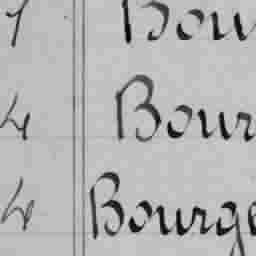 1 Bou
4 Bour
4 Bourge